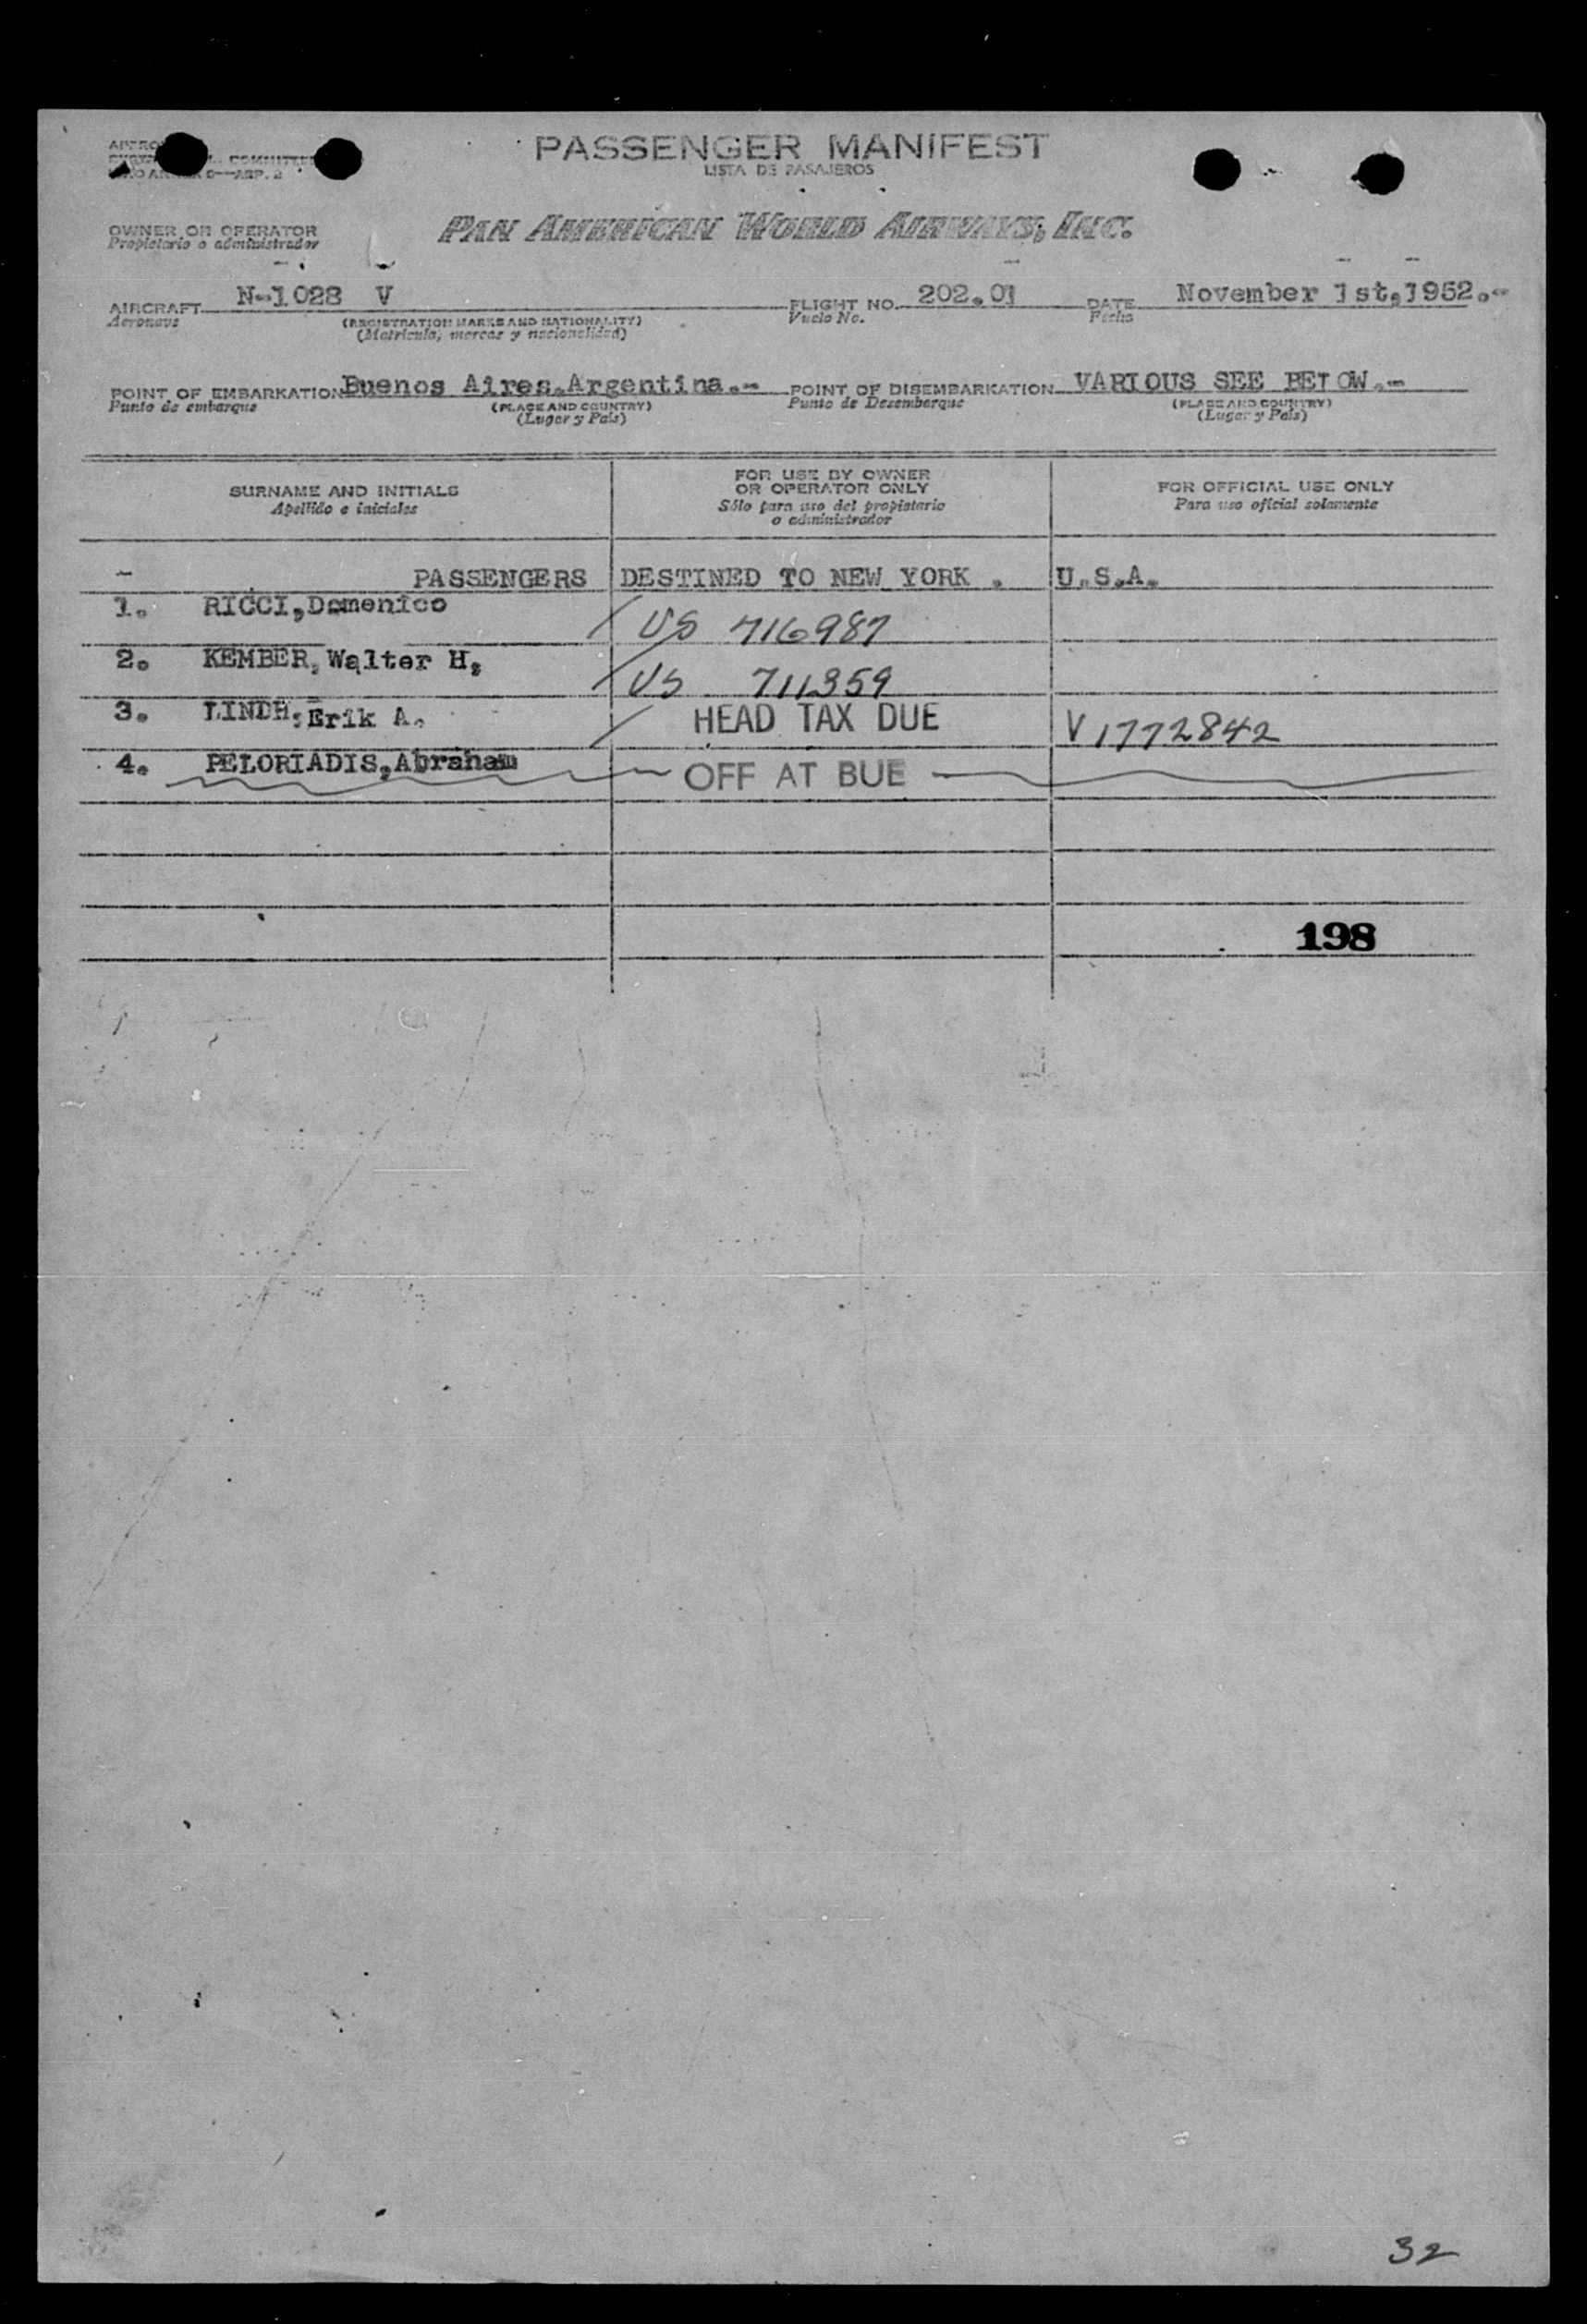 PASSENGER MANIFEST
LISTA DE PASAJEROS
COMMITTEE
OWNER OR OPERATOR
Propietario o administrador
PAN AMERICAN WORLD AIRWAYS, INC.
AIRCRAFT N-1028 V FLIGHT NO. 202.01 DATE November 1st,1952.-
Aeronave (REGISTRATION MARKS AND NATIONALITY) Vuelo No. Fecha
(Matricula, marcas y nacionalidad)
POINT OF EMBARKATION Buenos Aires.Argentina.- POINT OF DISEMBARKATION VARIOUS SEE BELOW.-
Punto de embarque (PLACE AND COUNTRY) Punto de Desembarque (PLACE AND COUNTRY)
(Lugar y País) (Lugar y País)
SURNAME AND INITIALS
Apellido e iniciales
FOR USE BY OWNER
OR OPERATOR ONLY
Sólo para uso del propietario
o administrador
FOR OFFICIAL USE ONLY
Para uso oficial solamente
- PASSENGERS DESTINED TO NEW YORK . U.S.A.
1. RICCI,Domenico / US 716987
2. KEMBER,Walter H, / US 711359
3. LINDH,Erik A. / HEAD TAX DUE V1772842
4. PELORIADIS,Abraham OFF AT BUE
198
32